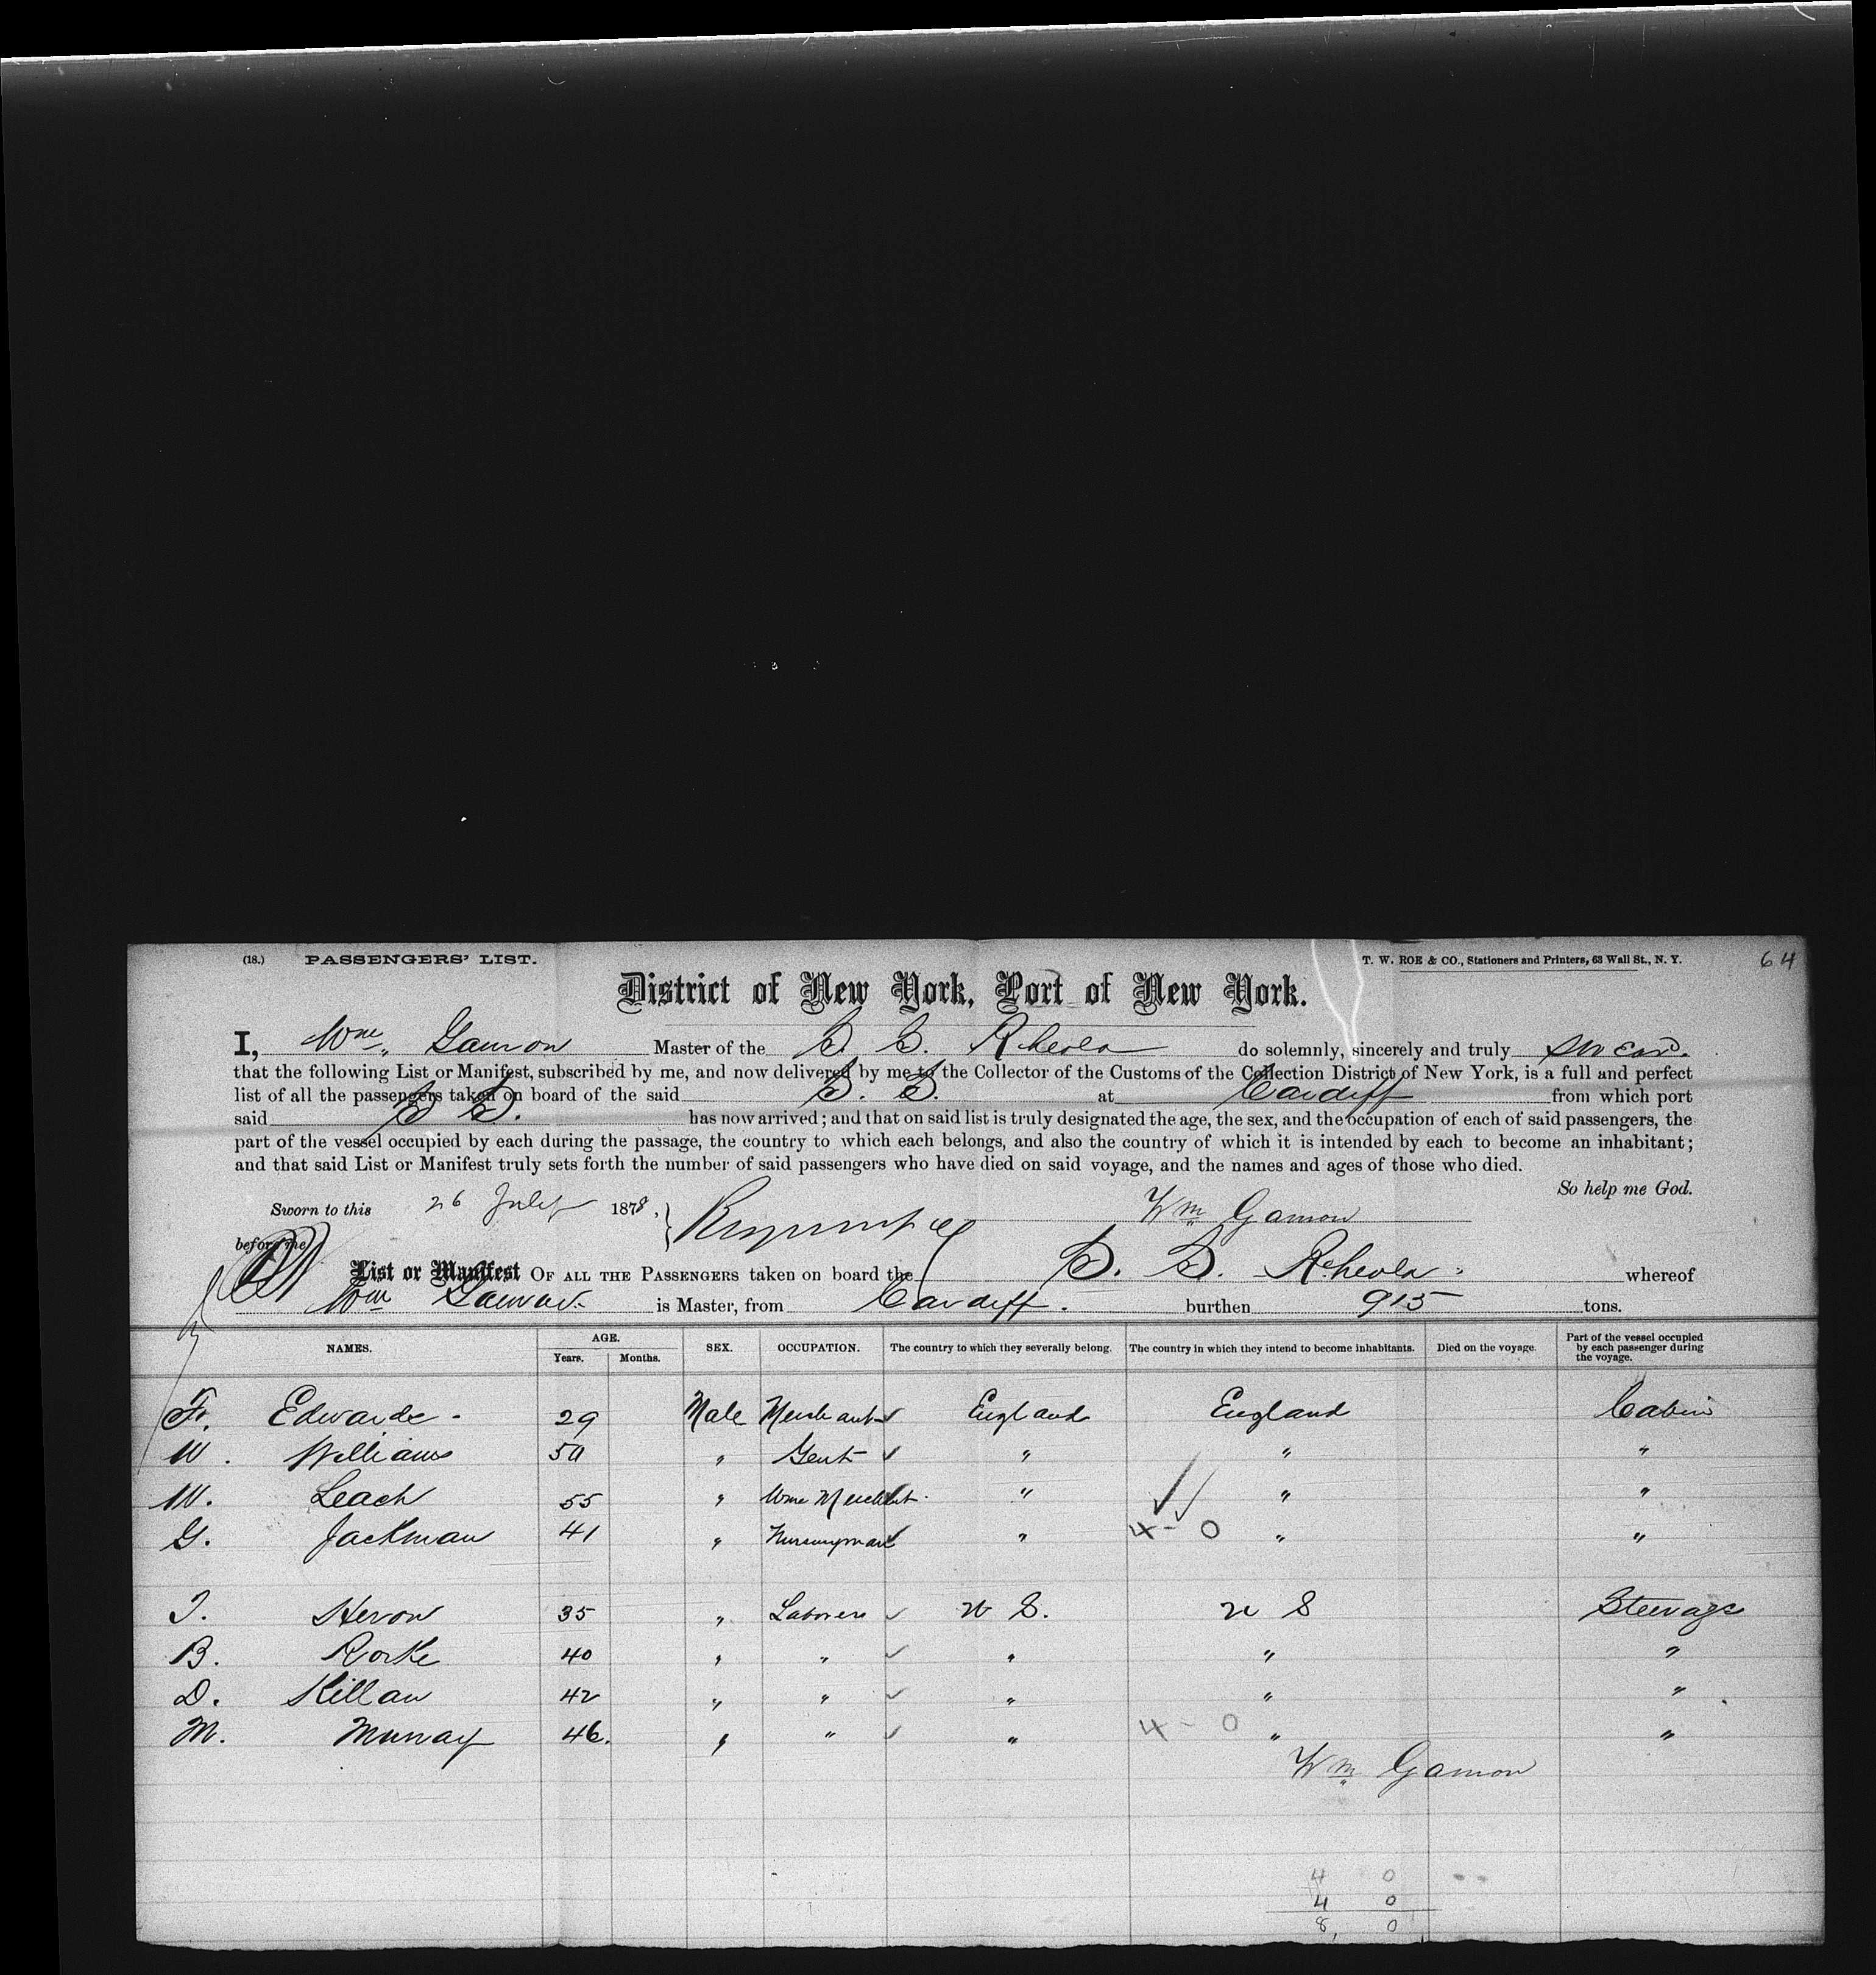 (18.) PASSENGERS' LIST. T. W. ROE & CO., Stationers and Printers, 63 Wall St., N. Y. 64
District of New York, Port of New York.
I, Wm Gamon Master of the S. S. Rheola do solemnly, sincerely and truly swear.
that the following List or Manifest, subscribed by me, and now delivered by me to the Collector of the Customs of the Collection District of New York, is a full and perfect
list of all the passengers taken on board of the said S. S. at Cardiff from which port
said S S. has now arrived; and that on said list is truly designated the age, the sex, and the occupation of each of said passengers, the
part of the vessel occupied by each during the passage, the country to which each belongs, and also the country of which it is intended by each to become an inhabitant;
and that said List or Manifest truly sets forth the number of said passengers who have died on said voyage, and the names and ages of those who died.
So help me God.
Sworn to this 26 July 1878, Wm Gamon
before me
List or Manifest OF ALL THE PASSENGERS taken on board the S. S. Rheola whereof
Wm Gamon is Master, from Cardiff. burthen 915 tons.
NAMES. AGE. Years. Months. SEX. OCCUPATION. The country to which they severally belong. The country in which they intend to become inhabitants. Died on the voyage. Part of the vessel occupied by each passenger during the voyage.
Fr. Edwards. 29 Male Merchant England England Cabin
W. Williams 50 " Gent " " "
W. Leach 55 " Wine Merchant " " "
G. Jackman 41 " Nurseryman " 4 - 0 " "
Heron 35 " Laborers U S. U S Steerage
B. Rorke 40 " " " " "
D. Killan 42 " " " " "
M. Murray 46. " " " 4 - 0 " "
Wm Gamon
4 0
4 0
8, 0